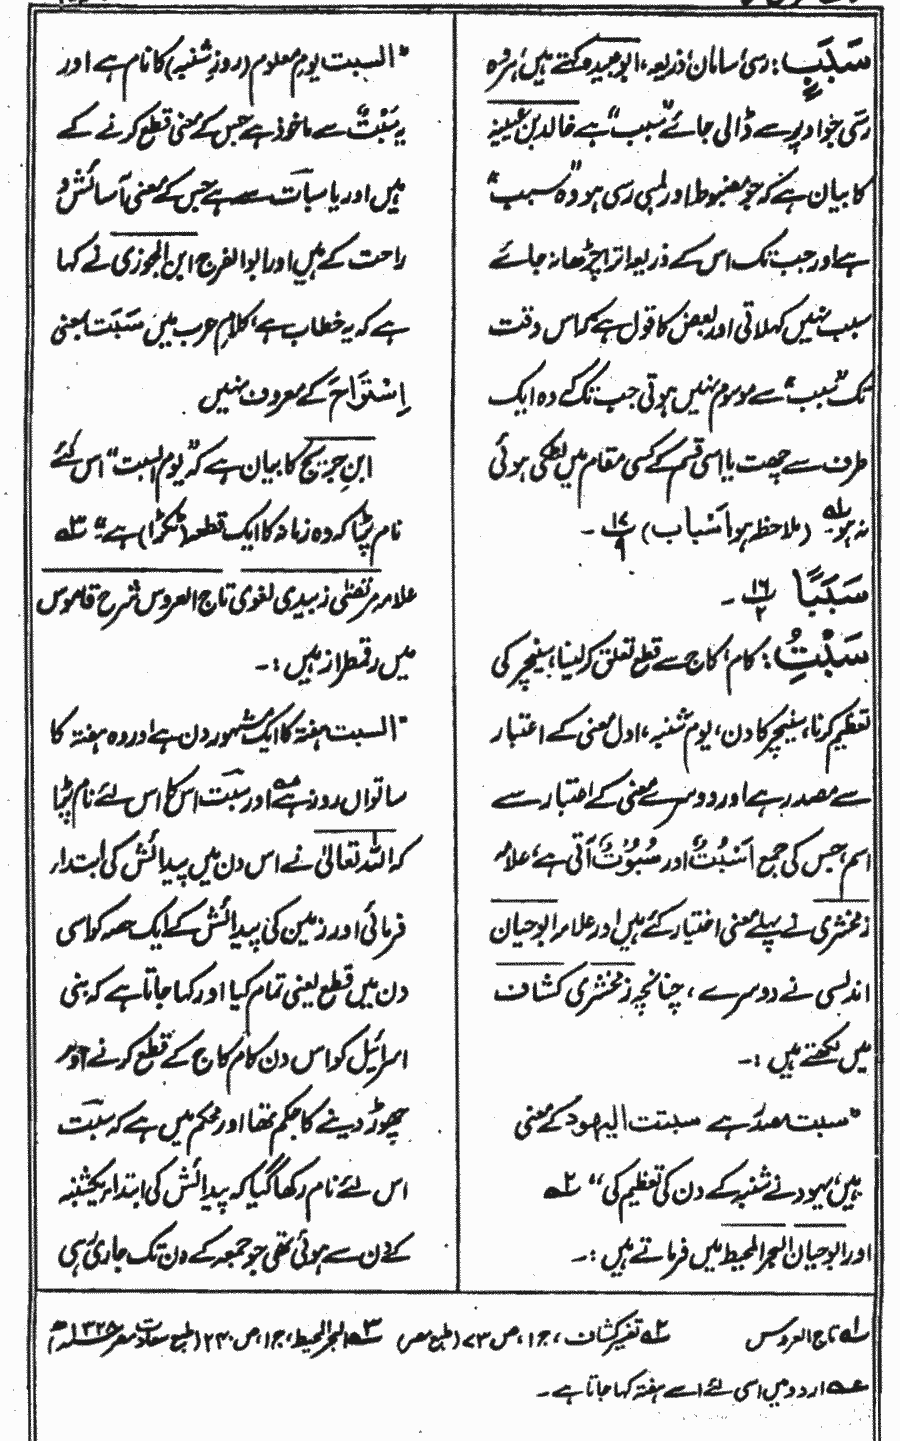 سَبَبٍ: رسی، سامان، ذریعہ، ابو عبیدہ کہتے ہیں، ہر وہ
رسّی جو اوپر سے ڈالی جائے "سبب" ہے خالد بن
کا بیان ہے کہ جو مضبوط اور لمبی رسی ہو وہ "سبب"
ہے اور جب تک اس کے ذریعہ اترا چڑھا نہ جائے
سبب نہیں کہلاتی اور بعض کا قول ہے کہ اس وقت
تک "سبب" سے موسوم نہیں ہوتی جب تک کہ وہ ایک
طرف سے چھت یا اسی قسم کے کسی مقام میں لٹکی ہوئی
نہ ہو ؎۱ (ملاحظہ ہو اَسْبَاب) ۱۷/۹ ـ
سَبَبًا ۱۶/۲ ـ
سَبْتُ: کام، کاج سے قطع تعلق کر لینا، سنیچر کی
تعظیم کرنا، سنیچر کا دن، یوم شنبہ، اول معنی کے اعتبار
سے مصدر ہے اور دوسرے معنی کے اعتبار سے
اسم، جس کی جمع اَسْبُتٌ اور سُبُوْتٌ آتی ہے، علامہ
زمخشری نے پہلے معنی اختیار کئے ہیں اور علامہ ابو حیان
اندلسی نے دوسرے، چنانچہ زمخشری کشاف
میں لکھتے ہیں :ـ
"سبت مصدر ہے سبتت الیہود کے معنی
ہیں، یہود نے شنبہ کے دن کی تعظیم کی" ؎۲
اور ابو حیان البحر المحیط میں فرماتے ہیں :ـ
"السبت یوم معلوم (روز شنبہ) کا نام ہے اور
یہ سَبْتٌ سے ماخوذ ہے جس کے معنی قطع کرنے کے
ہیں اور یا سبات سے ہے جس کے معنی آسائش و
راحت کے ہیں اور ابو الفرج ابن الجوزی نے کہا
ہے کہ یہ خطا ہے، کلام عرب میں سَبَتَ بمعنی
اِسْتَرَاحَ کے معروف نہیں
ابن جریج کا بیان ہے کہ "یوم السبت" اس لئے
نام پڑا کہ وہ زمانہ کا ایک قطعہ (ٹکڑا) ہے" ؎۳
علامہ مرتضیٰ زبیدی لغوی تاج العروس شرح قاموس
میں رقمطراز ہیں :ـ
"السبت ہفتہ کا ایک مشہور دن ہے اور وہ ہفتہ کا
ساتواں روز ہے اور سبت اس کا اس لئے نام پڑا
کہ اللہ تعالیٰ نے اس دن میں پیدائش کی ابتداء
فرمائی اور زمین کی پیدائش کے ایک حصہ کو اسی
دن میں قطع یعنی تمام کیا اور کہا جاتا ہے کہ بنی
اسرائیل کو اس دن کام کاج کے قطع کرنے اور
چھوڑ دینے کا حکم تھا اور محکم میں ہے کہ سبت
اس لئے نام رکھا گیا کہ پیدائش کی ابتداء یکشنبہ
کے دن سے ہوئی تھی جو جمعہ کے دن تک جاری رہی
؎۱ تاج العروس ؎۲ تفسیر کشاف، ج۱، ص ۷۳ (طبع مصر) ؎۳ البحر المحیط، ج۱، ص ۲۴۰ (طبع سعادت مصر ۱۳۲۸ھ)
؎ اردو میں اسی لئے اسے ہفتہ کہا جاتا ہے ـ